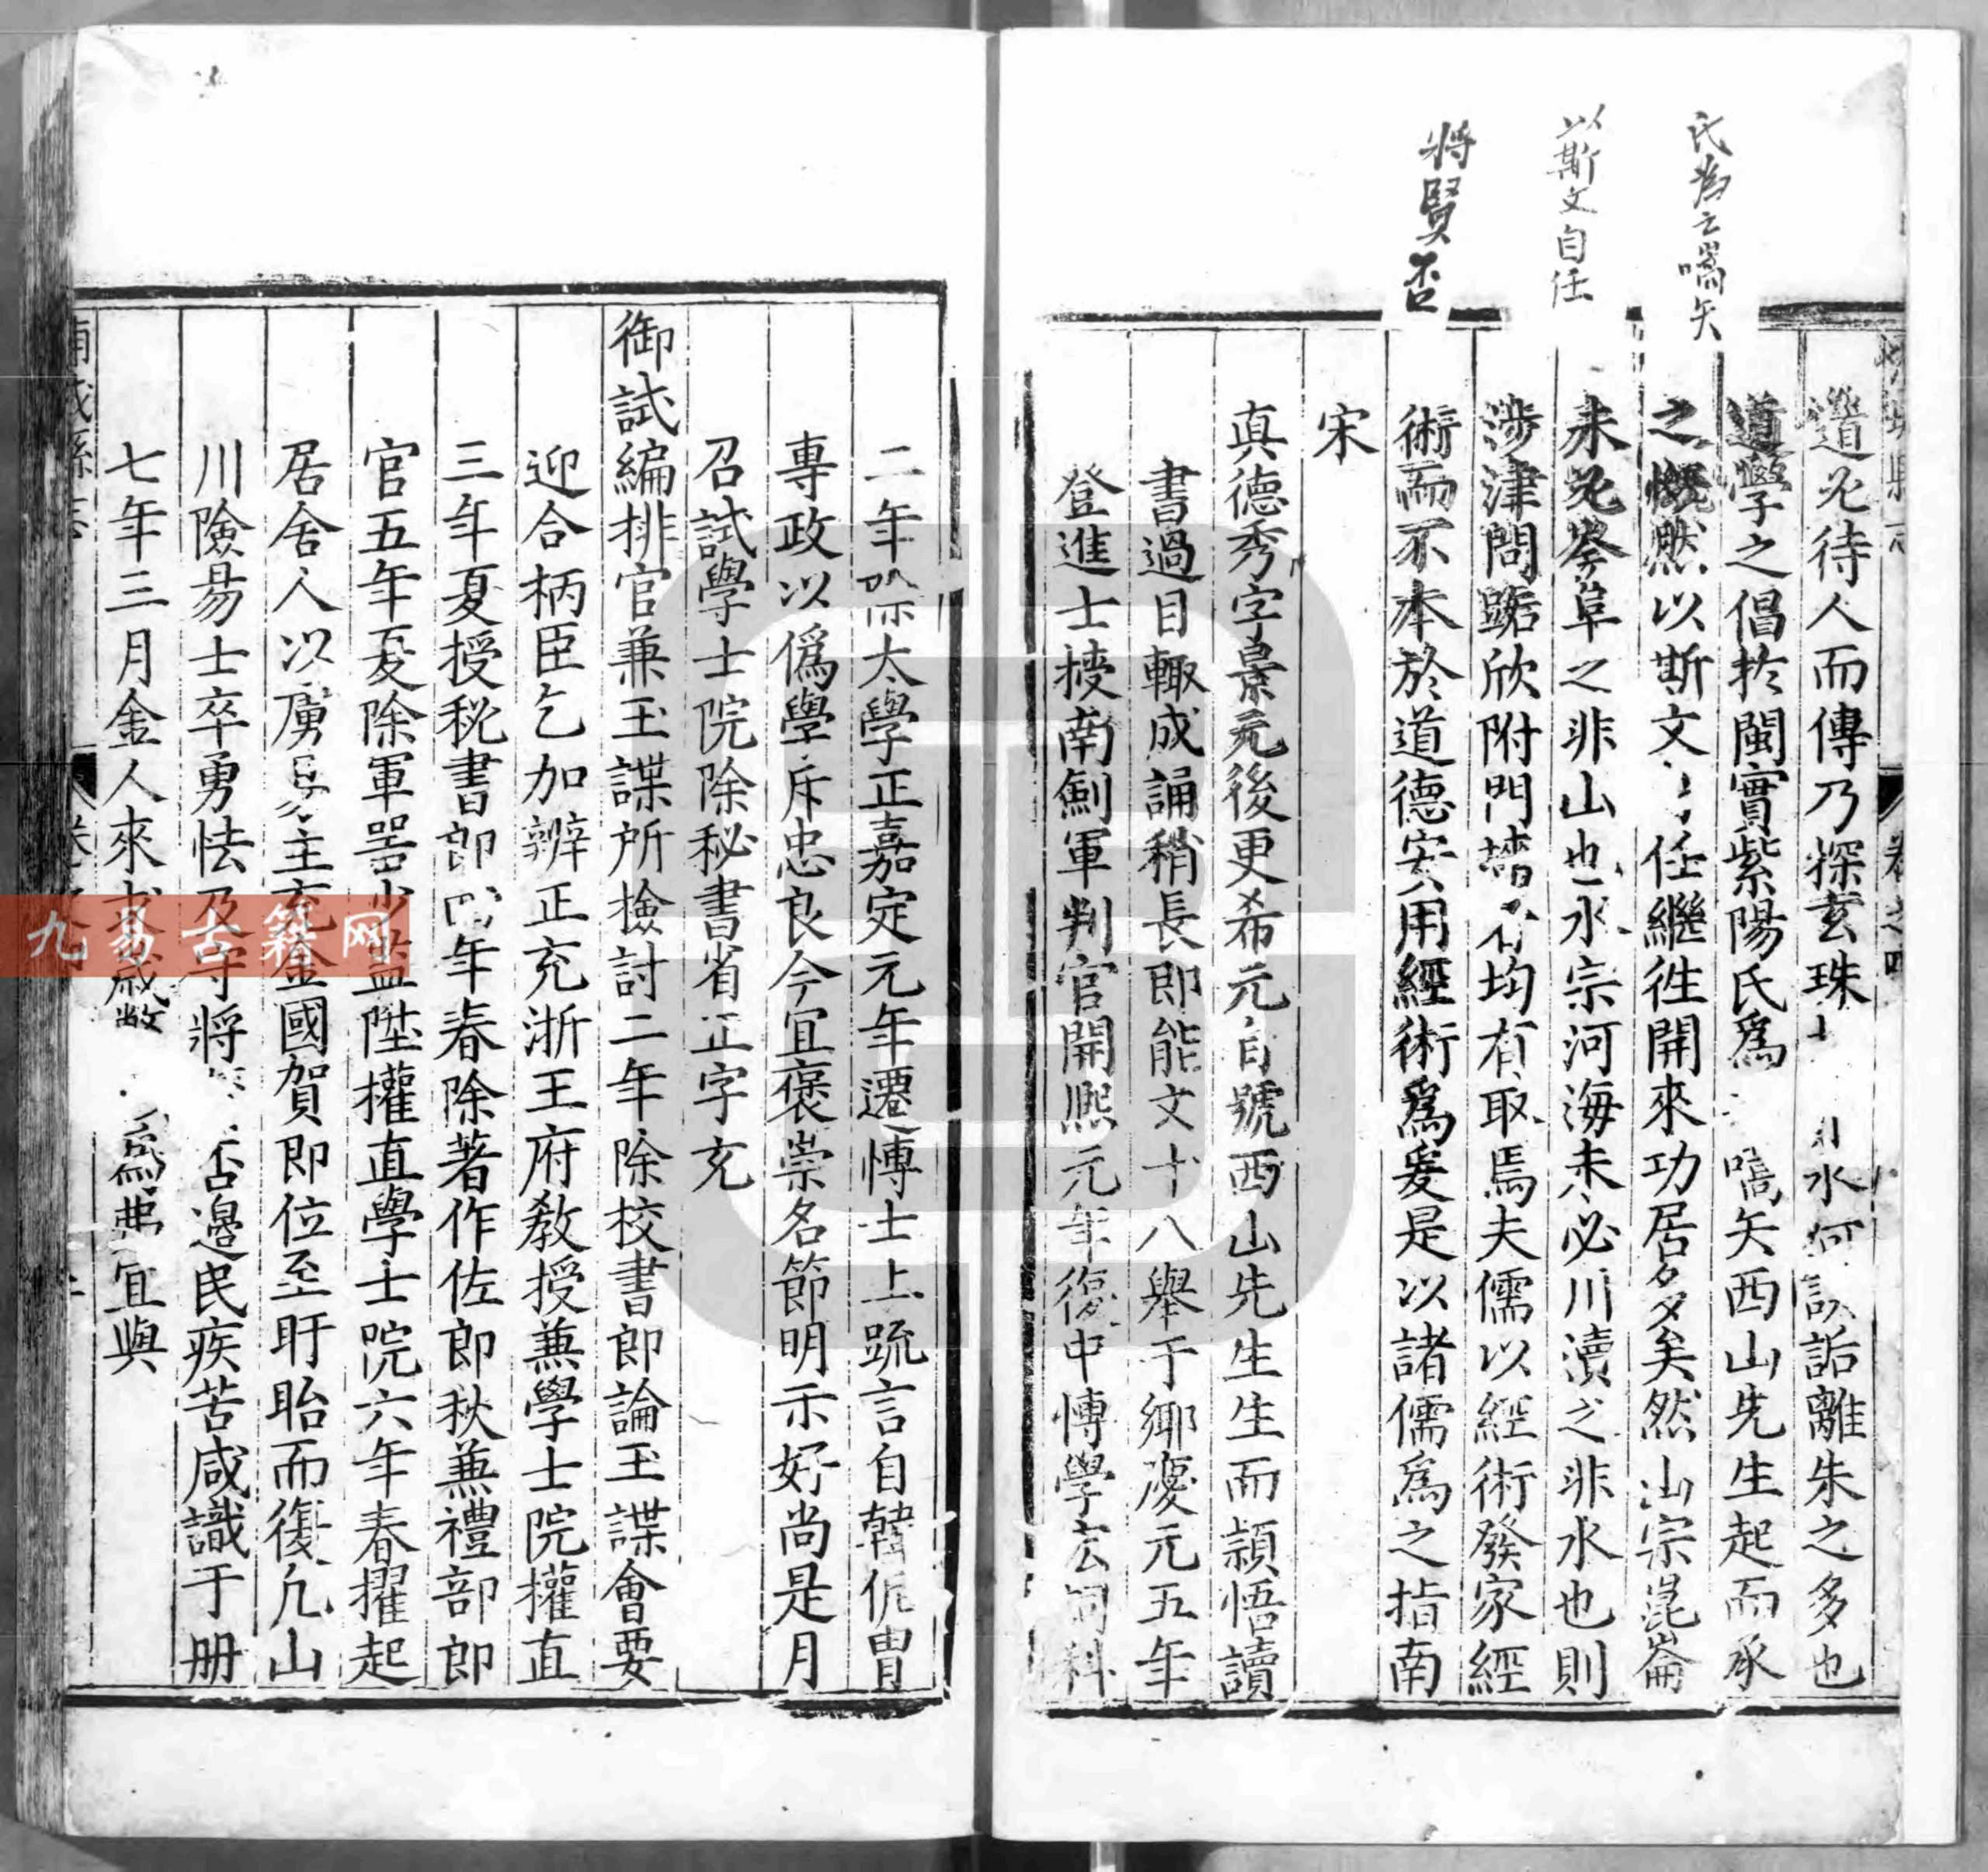 氏為之嚆矢
以斯文自任
將賢否
道必待人而傳乃探玄珠 水河 詬離朱之多也
道學之倡扵閩實紫陽氏爲 嚆矢西山先生起而承
之慨然以斯文 任繼徃開來功居多矣然山宗崑崙
未必峯阜之非山也水宗河海未必川瀆之非水也則
涉津問踞欣附門墻 均有取焉夫儒以經術發家經
術而不本於道德安用經術爲爰是以諸儒爲之指南
宋
真德秀字景元後更希元自號西山先生生而頴悟讀
書過目輙成誦稍長即能文十八舉于鄉慶元五年
登進士授南劍軍判官開熙元年復中博學宏詞科
二年除太學正嘉定元年遷博士上疏言自韓侂胄
專政以僞學斥忠良今宜褒崇名節明示好尚是月
召試學士院除秘書省正字充
御試編排官兼玉諜所撿討二年除校書郎論玉諜會要
迎合柄臣乞加辨正充浙王府教授兼學士院權直
三年夏授秘書郎四年春除著作佐郎秋兼禮部郎
官五年夏除軍器少監陞權直學士院六年春擢起
居舍人以 充金國賀即位至盱眙而復凢山
川險昜士卒勇怯及守將 否邊民疾苦咸識于册
七年三月金人來 歲 爲弗宜與
卷之四
九易古籍网